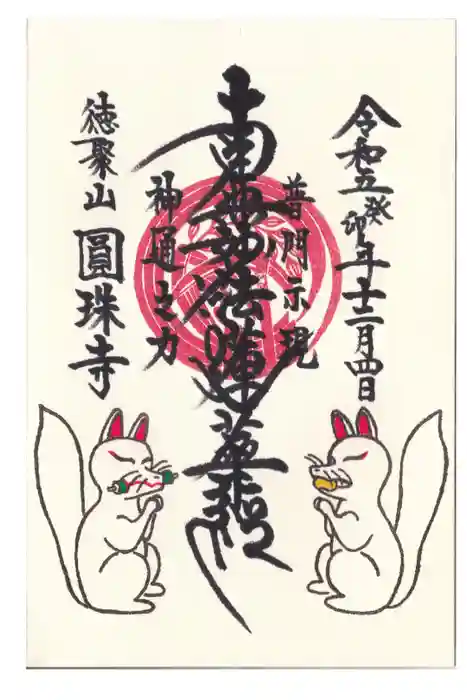 令和五癸卯年十二月四日
普門示現
南無妙法蓮華経
神通之力
徳聚山
圓珠寺